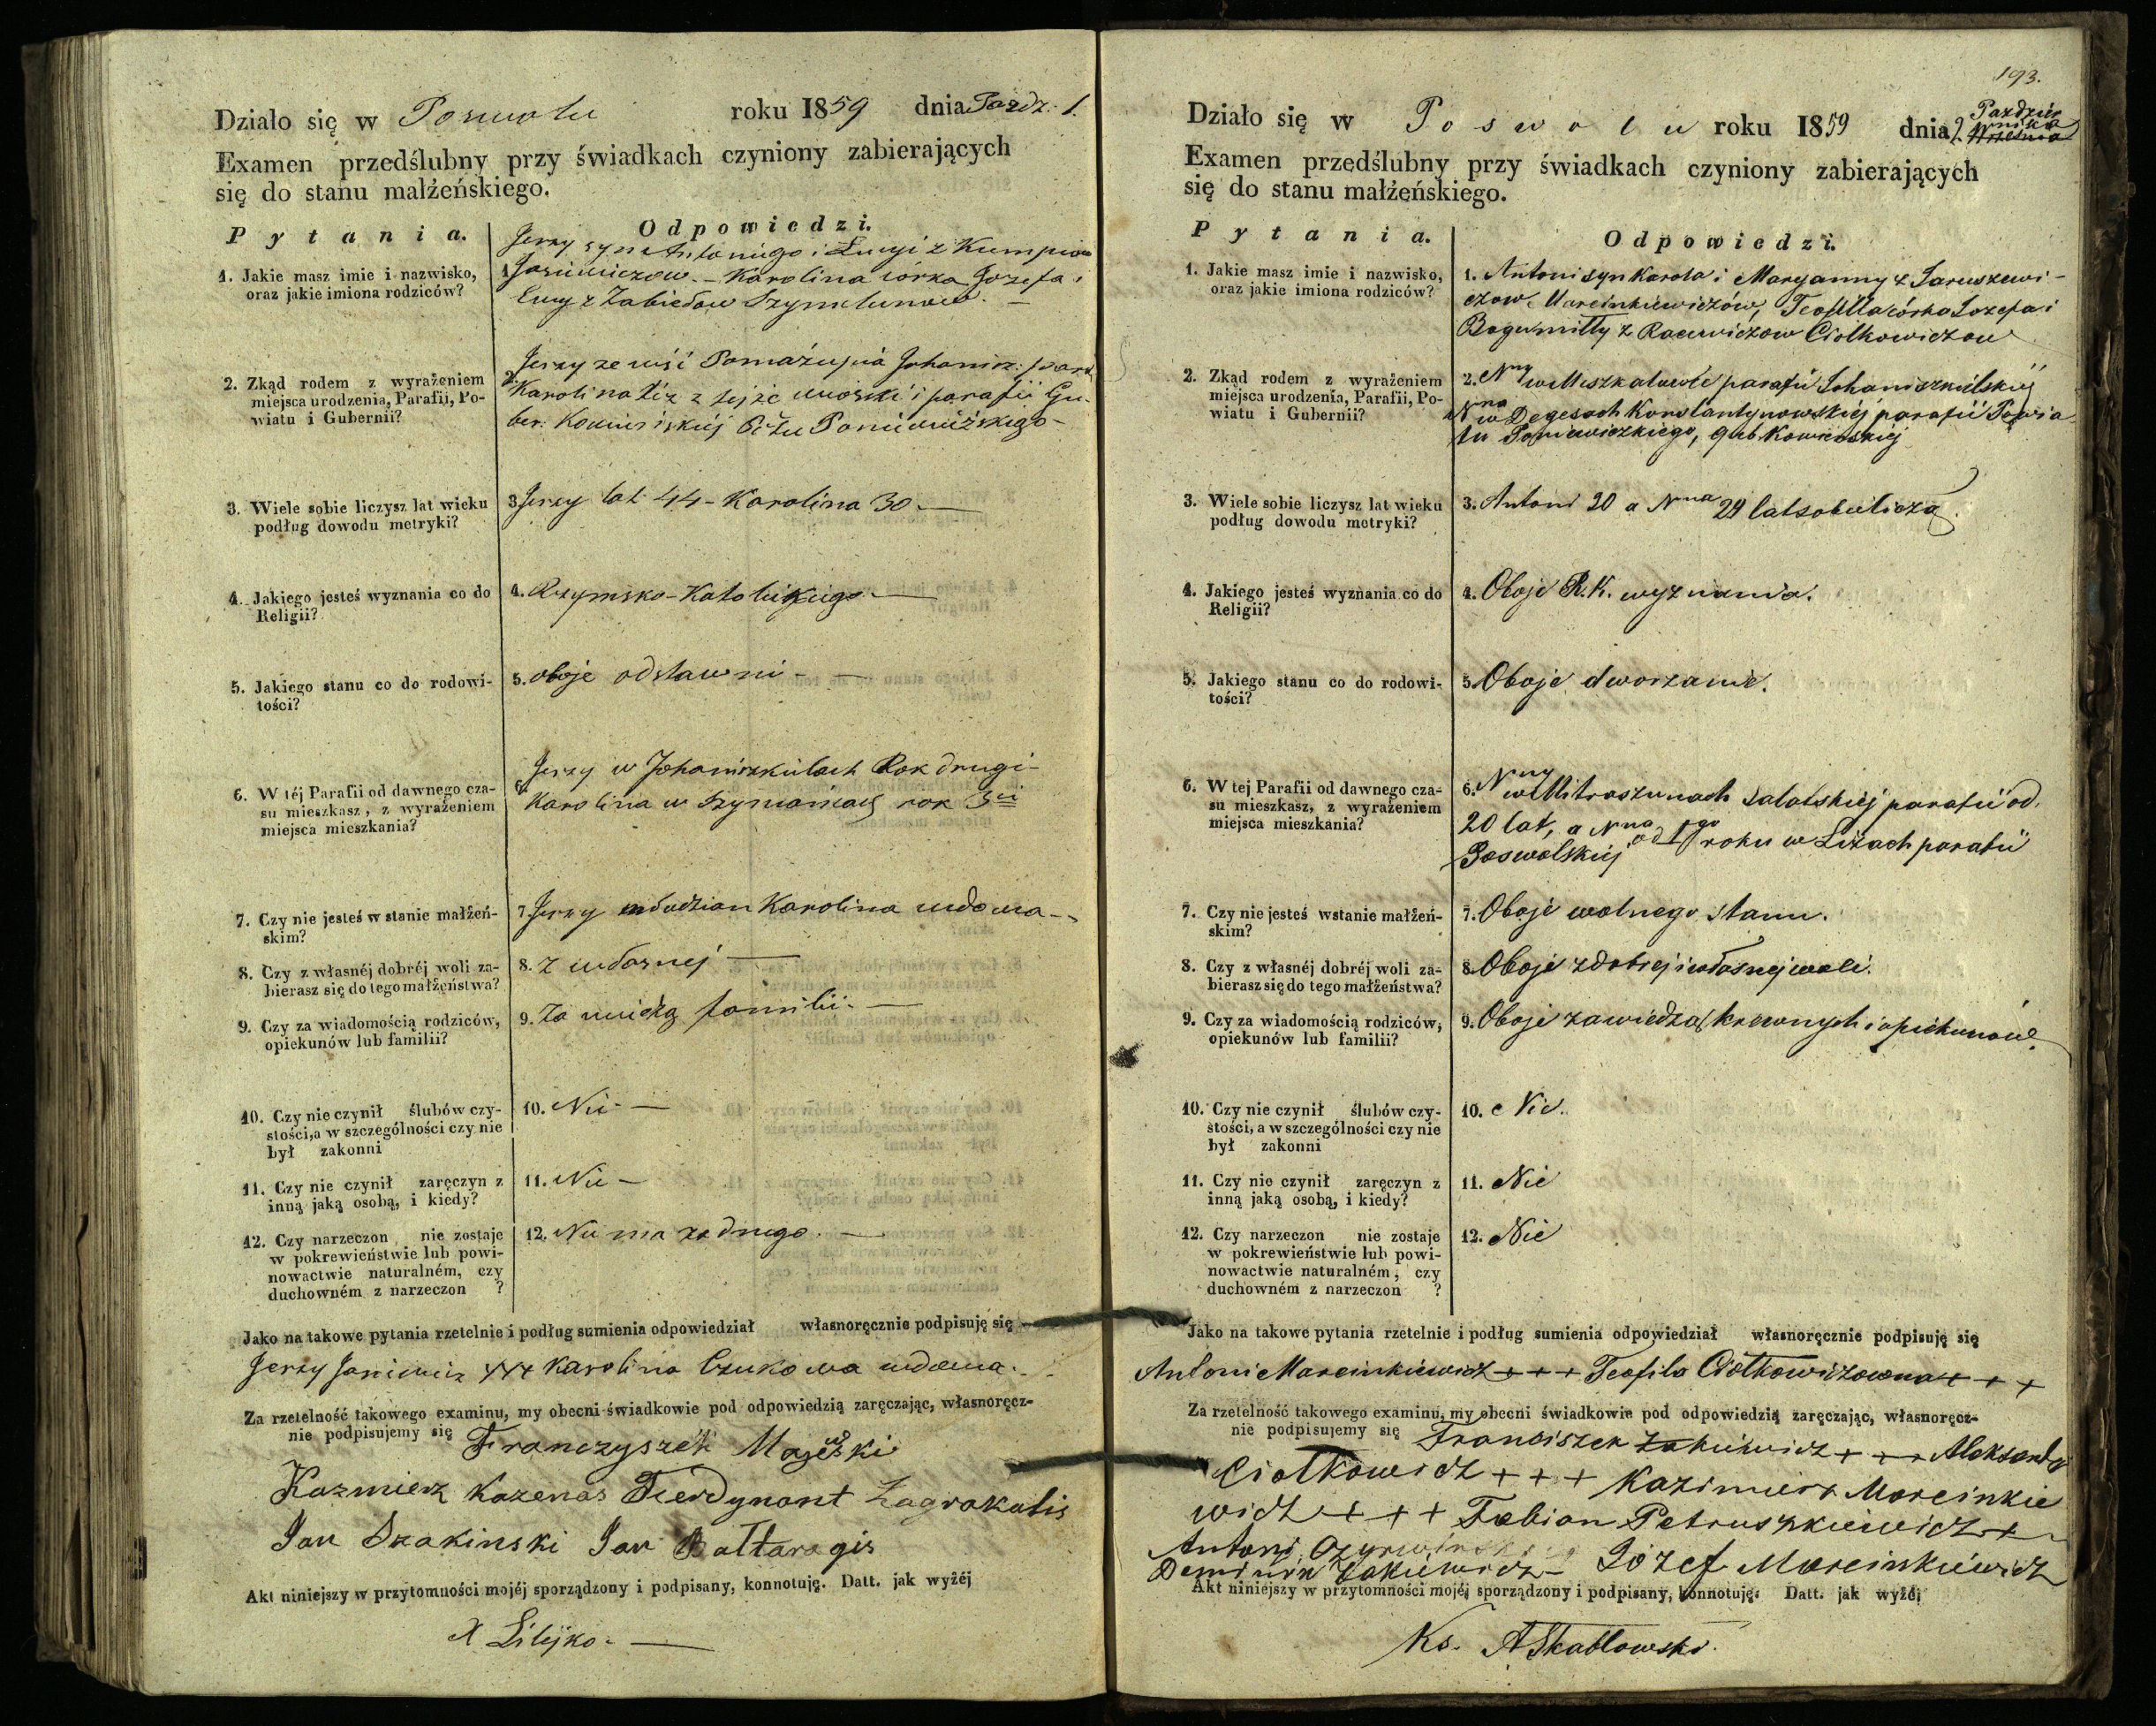 Działo się w Poswolu roku 1859 dnia Pazdz. 1.
Examen przedślubny przy świadkach czyniony zabierających
się do stanu małżeńskiego.
Pytania.
Odpowiedzi.
1. Jakie masz imie i nazwisko,
oraz jakie imiona rodziców?
Jerzy syn Antoniego i Łucyi z
1. Janiewiczow. – Karolina córka Jozefa i
Łucyi z
2. Zkąd rodem z wyrażeniem
miejsca urodzenia, Parafii, Po-
wiatu i Gubernii?
Jerzy ze wsi
2. Karolina też z tejże wioski i parafii Gu-
ber. Kowienskiej Pttu Poniewiżskiego –
3. Wiele sobie liczysz lat wieku
podług dowodu metryki?
3. Jerzy lat 44 – Karolina 30. –
4. Jakiego jesteś wyznania co do
Religii?
4. Rzymsko-Katolickiego –
5. Jakiego stanu co do rodowi-
tości?
5. oboje odstawni – –
6. W téj Parafii od dawnego cza-
su mieszkasz, z wyrażeniem
miejsca mieszkania?
Jerzy w Johaniszkielach Rok drugi –
6. Karolina w rok 3ci
7. Czy nie jesteś w stanie małżeń-
skim?
7. Jerzy młodzian Karolina wdowa – –
8. Czy z własnéj dobréj woli za-
bierasz się do tego małżeństwa?
8. z własnej –
9. Czy za wiadomością rodziców,
opiekunów lub familii?
9. Za wiedzą familii. –
10. Czy nie czynił ślubów czy-
stości, a w szczególności czy nie
był zakonni
10. Nie –
11. Czy nie czynił zaręczyn z
inną jaką osobą, i kiedy?
11. Nie –
12. Czy narzeczon nie zostaje
w pokrewieństwie lub powi-
nowactwie naturalném, czy
duchowném z narzeczon ?
12. Nie ma żadnego. –
Jako na takowe pytania rzetelnie i podług sumienia odpowiedział własnoręcznie podpisuję się
Jerzy Janiewicz +++ Karolina Czukowa wdowa.
Za rzetelność takowego examinu, my obecni świadkowie pod odpowiedzią zaręczając, własnoręcz-
nie podpisujemy się Franczyszek
Kazmierz Kazenas Fierdynant Zagrakalis
Jan Szakinski Jan Bałtaragis
Akt niniejszy w przytomności mojéj sporządzony i podpisany, konnotuję. Datt. jak wyżéj
X Lilejko. –
193.
Działo się w Poswolu roku 1859 dnia 2. Października
Examen przedślubny przy świadkach czyniony zabierających
się do stanu małżeńskiego.
Pytania.
Odpowiedzi.
1. Jakie masz imie i nazwisko,
oraz jakie imiona rodziców?
1. Antoni syn Karola i Maryanny z Jaruszewi-
czow Marcinkiewiczów, Teofilla córka Jozefa i
Bogumiłły z Racewiczow Ciołkowiczow
2. Zkąd rodem z wyrażeniem
miejsca urodzenia, Parafii, Po-
wiatu i Gubernii?
2. Nny w parafii Johaniszkielskiej
Nna w Degesach Konstantynowskiej parafii Powia-
tu Poniewiezkiego, gub Kowienskiej
3. Wiele sobie liczysz lat wieku
podług dowodu metryki?
3. Antoni 20 a Nna 29 lat sobie liczą.
4. Jakiego jesteś wyznania co do
Religii?
4. Oboje R. K. wyznania.
5. Jakiego stanu co do rodowi-
tości?
5. Oboje dworzanie.
6. W tej Parafii od dawnego cza-
su mieszkasz, z wyrażeniem
miejsca mieszkania?
6. Nny w Mitraszunach Sałatskiej parafii od
20 lat, a Nna od 1go roku w Liżach parafii
Poswolskiej
7. Czy nie jesteś w stanie małżeń-
skim?
7. Oboje wolnego stanu.
8. Czy z własnéj dobréj woli za-
bierasz się do tego małżeństwa?
8. Oboje z dobrej i własnej woli.
9. Czy za wiadomością rodziców,
opiekunów lub familii?
9. Oboje za wiedzą krewnych i opiekunów.
10. Czy nie czynił ślubów czy-
stości, a w szczególności czy nie
był zakonni
10. Nie.
11. Czy nie czynił zaręczyn z
inną jaką osobą, i kiedy?
11. Nie
12. Czy narzeczon nie zostaje
w pokrewieństwie lub powi-
nowactwie naturalném, czy
duchowném z narzeczon ?
12. Nie
Jako na takowe pytania rzetelnie i podług sumienia odpowiedział własnoręcznie podpisuję się
Antoni Marcinkiewicz + + + Teofila Ciołkowiczowna + + +
Za rzetelność takowego examinu, my obecni świadkowie pod odpowiedzią zaręczając, własnoręcz-
nie podpisujemy się Franciszek Żakiewicz + + + Aleksandr
Ciołkowicz + + + Kazimierz Marcinkie
wicz + + + Fabian Petruszkiewicz +
Antoni
Żakiewicz – Józef Marcinkiewicz
Akt niniejszy w przytomności mojéj sporządzony i podpisany, konnotuję. Datt. jak wyżéj
Ks. A Skabłowski.